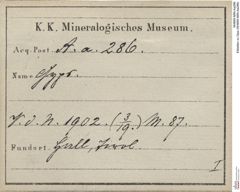 K. K. Mineralogisches Museum.
Acq. Post. A. a. 286.
Name Gyps.
V. d. N. 1902. (3/19.) M. 87.
Fundort. Hall, Tirol
I